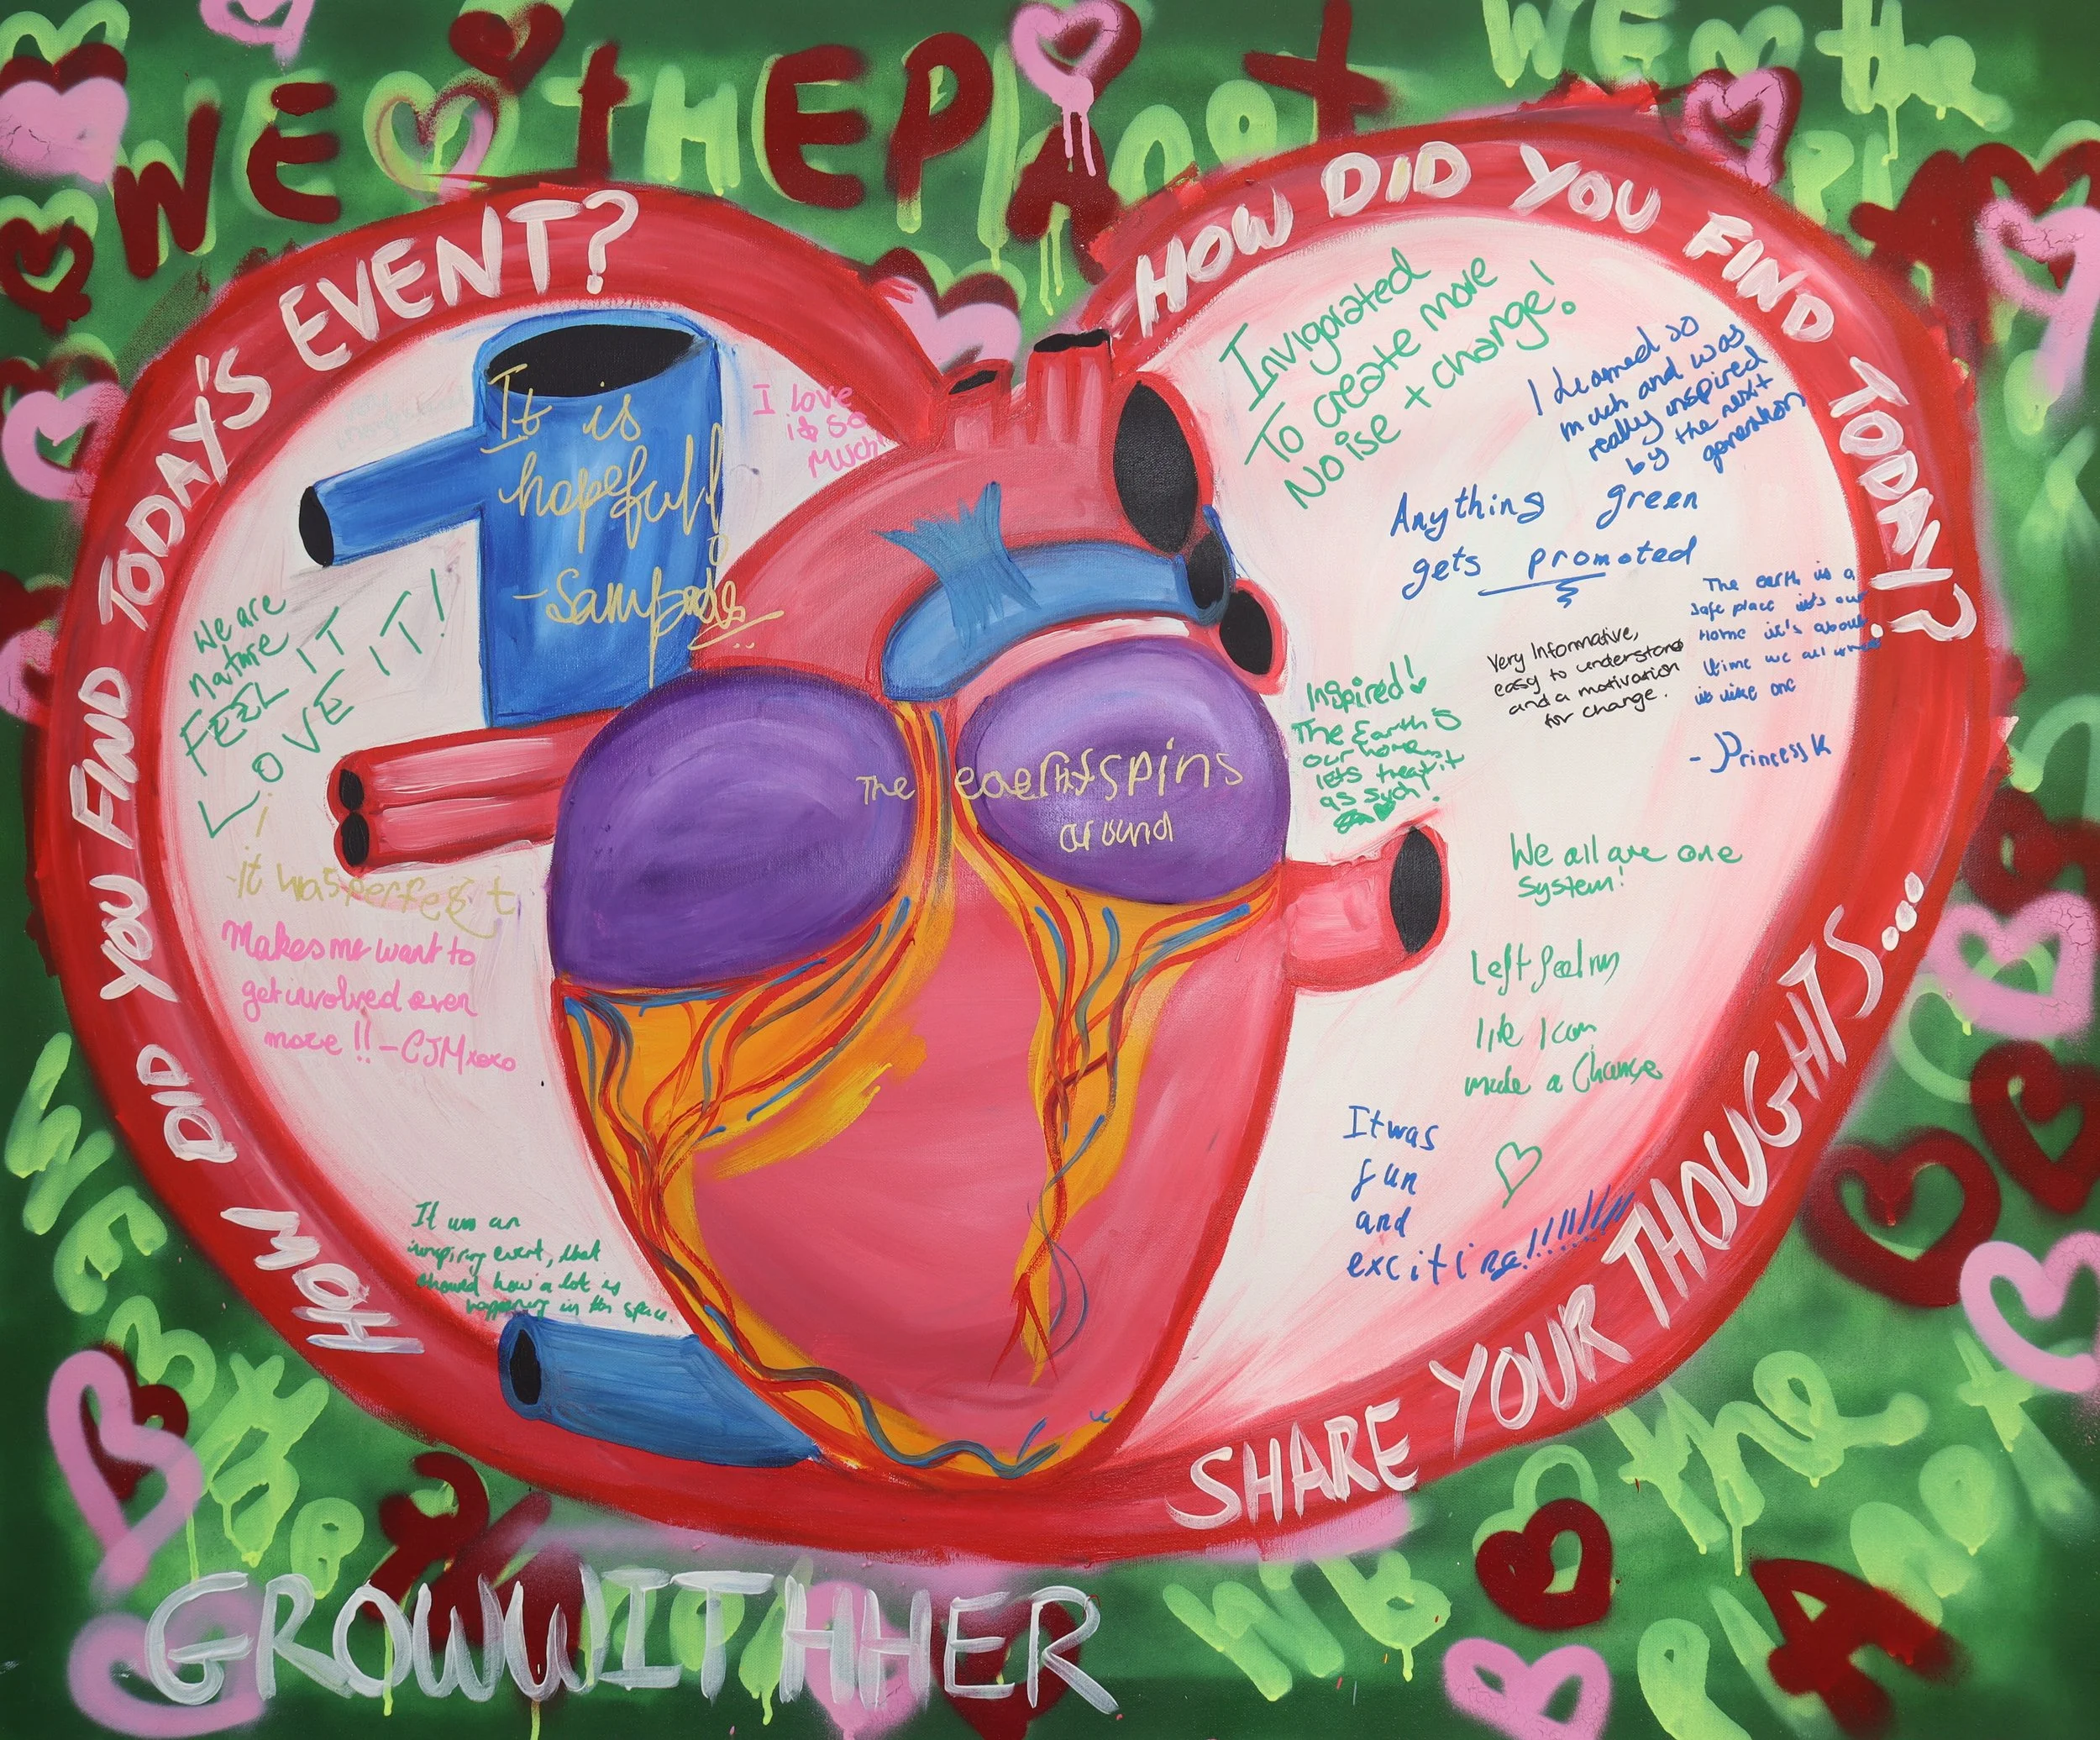 WE the PLAnet
WE
the
HOW DID YOU FIND TODAY'S EVENT?
HOW DID YOU FIND TODAY?
SHARE YOUR THOUGHTS...
It is
hopefull
I love
it so
much
We are
nature
FEEL IT
LOVE IT!
it was perfect
Makes me want to
get involved even
more !! - CJM xoxo
It was an
inspiring event, that
showed how a lot is
happening in this space.
The earth spins
around
Invigorated
To create more
Noise + change!
I Learned so
much and was
really inspired
by the next
generation
Anything green
gets promoted
The earth is a
safe place it's our
Home it's about
time we all
- Princess K
Very Informative,
easy to understand
and a motivation
for change.
Inspired!
The Earth is
our home
lets treat it
as such!
We all are one
System!
Left feeling
like I can
make a Change
It was
fun
and
exciting!!!!!!!!!
WE
the
GROWWITHHER